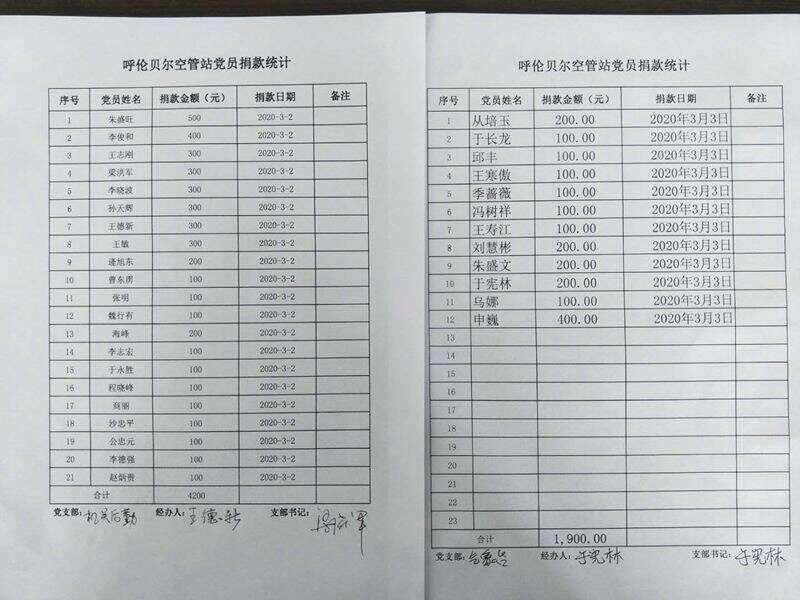 呼伦贝尔空管站党员捐款统计
序号 党员姓名 捐款金额（元） 捐款日期 备注
1 朱盛旺 500 2020-3-2
2 李俊和 400 2020-3-2
3 王志刚 300 2020-3-2
4 梁洪军 300 2020-3-2
5 李晓波 300 2020-3-2
6 孙天辉 300 2020-3-2
7 王德新 300 2020-3-2
8 王敏 300 2020-3-2
9 逄旭东 200 2020-3-2
10 曹东雳 100 2020-3-2
11 张明 100 2020-3-2
12 魏行有 100 2020-3-2
13 海峰 200 2020-3-2
14 李志宏 100 2020-3-2
15 于永胜 100 2020-3-2
16 程晓峰 100 2020-3-2
17 商丽 100 2020-3-2
18 沙忠平 100 2020-3-2
19 公忠元 100 2020-3-2
20 李德强 100 2020-3-2
21 赵炳贵 100 2020-3-2
合计 4200
党支部：机关后勤 经办人：王德新 支部书记：梁洪军
呼伦贝尔空管站党员捐款统计
序号 党员姓名 捐款金额（元） 捐款日期 备注
1 从培玉 200.00 2020年3月3日
2 于长龙 100.00 2020年3月3日
3 邱丰 100.00 2020年3月3日
4 王寒傲 100.00 2020年3月3日
5 季蔷薇 100.00 2020年3月3日
6 冯树祥 100.00 2020年3月3日
7 王寿江 100.00 2020年3月3日
8 刘慧彬 200.00 2020年3月3日
9 朱盛文 200.00 2020年3月3日
10 于宪林 200.00 2020年3月3日
11 乌娜 100.00 2020年3月3日
12 申巍 400.00 2020年3月3日
13
14
15
16
17
18
19
20
21
22
23
合计 1,900.00
党支部： 经办人：于宪林 支部书记：于宪林